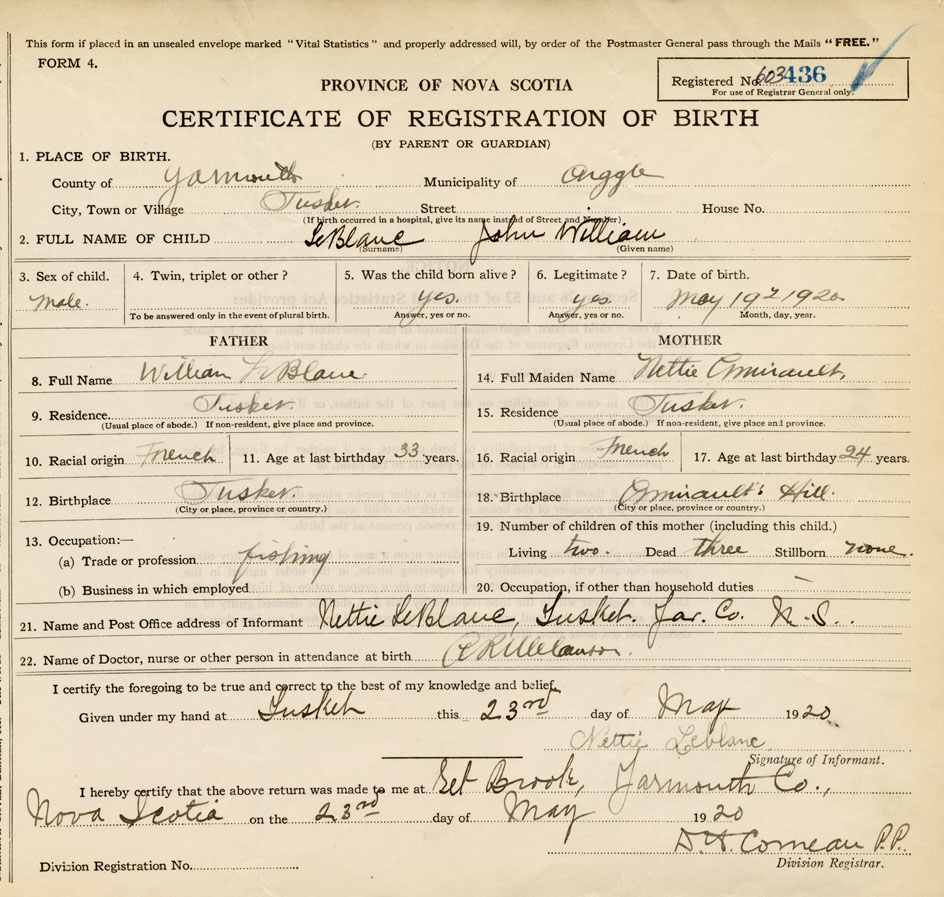 This form if placed in an unsealed envelope marked "Vital Statistics" and properly addressed will, by order of the Postmaster General pass through the Mails "FREE."
FORM 4.
Registered No. 603436
For use of Registrar General only.
PROVINCE OF NOVA SCOTIA
CERTIFICATE OF REGISTRATION OF BIRTH
(BY PARENT OR GUARDIAN)
1. PLACE OF BIRTH.
County of Yarmouth Municipality of Argyle
City, Town or Village Tusket. Street House No.
(If birth occurred in a hospital, give its name instead of Street and Number)
2. FULL NAME OF CHILD LeBlanc John William
(Surname) (Given name)
3. Sex of child. 4. Twin, triplet or other? 5. Was the child born alive? 6. Legitimate? 7. Date of birth.
Male. yes. yes. May 19th 1920
To be answered only in the event of plural birth. Answer, yes or no. Answer, yes or no. Month, day, year.
FATHER MOTHER
8. Full Name William LeBlanc 14. Full Maiden Name Nettie Amirault
9. Residence Tusket. 15. Residence Tusket.
(Usual place of abode.) If non-resident, give place and province. (Usual place of abode.) If non-resident, give place and province.
10. Racial origin French 11. Age at last birthday 33 years. 16. Racial origin French 17. Age at last birthday 24 years.
12. Birthplace Tusket. 18. Birthplace Amirault's Hill.
(City or place, province or country.) (City or place, province or country.)
13. Occupation:— 19. Number of children of this mother (including this child.)
(a) Trade or profession fishing Living two. Dead three Stillborn none.
(b) Business in which employed 20. Occupation, if other than household duties —
21. Name and Post Office address of Informant Nettie LeBlanc, Tusket. Yar. Co. N.S.
22. Name of Doctor, nurse or other person in attendance at birth
I certify the foregoing to be true and correct to the best of my knowledge and belief.
Given under my hand at Tusket this 23rd day of May 1920
Nettie Leblanc
Signature of Informant.
I hereby certify that the above return was made to me at Eel Brook, Yarmouth Co.,
Nova Scotia on the 23rd day of May 1920
D. H. Comeau P.P.
Division Registration No. Division Registrar.